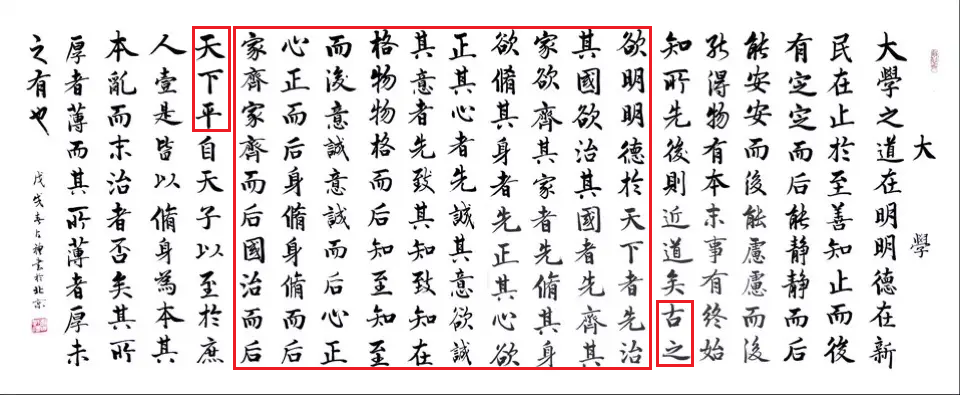 大學
大學之道在明明德在新
民在止於至善知止而後
有定定而后能静静而后
能安安而後能慮慮而後
能得物有本末事有終始
知所先後則近道矣古之
欲明明德於天下者先治
其國欲治其國者先齊其
家欲齊其家者先脩其身
欲脩其身者先正其心欲
正其心者先誠其意欲誠
其意者先致其知致知在
格物物格而后知至知至
而後意誠意誠而后心正
心正而后身脩身脩而后
家齊家齊而后國治而后
天下平自天子以至於庶
人壹是皆以脩身為本其
本亂而末治者否矣其所
厚者薄而其所薄者厚未
之有也
戊戌春書於北京